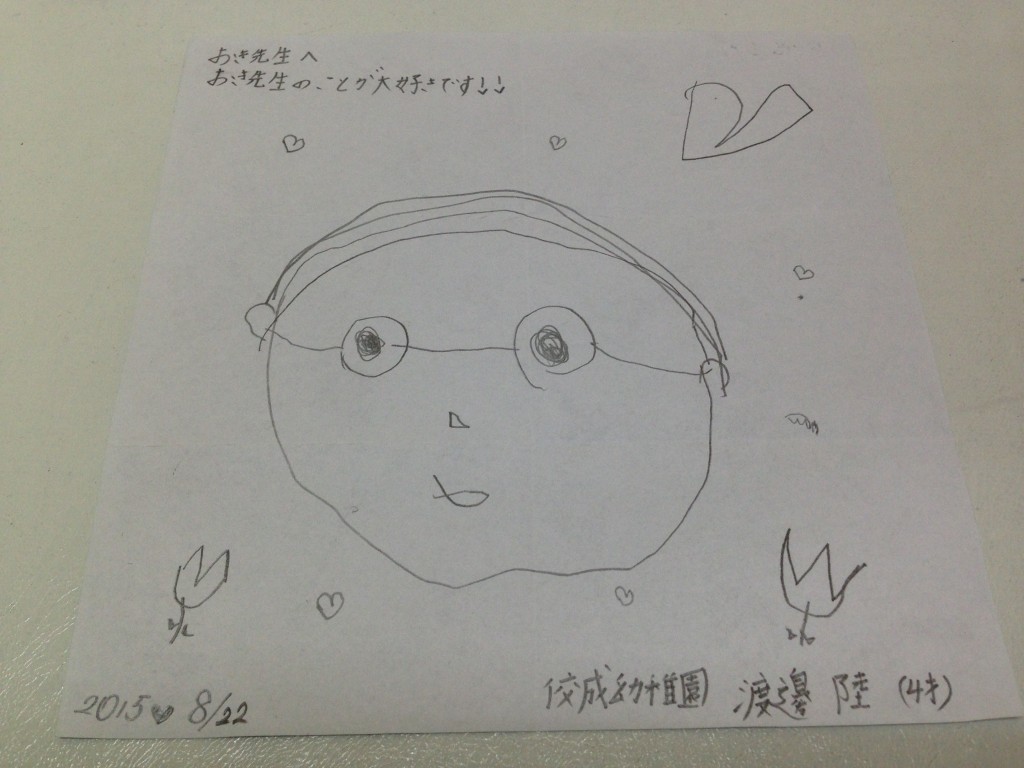 おき先生へ
おき先生のことが大好きです!!
2015♥8/22
佼成幼稚園 渡邊 陸 (4才)